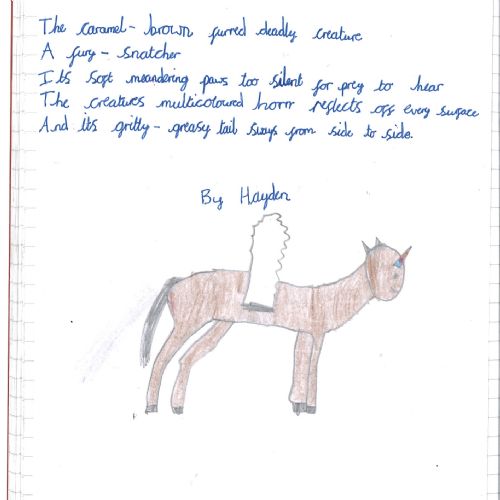 The caramel-brown furred deadly creature
A fury-snatcher
Its soft meandering paws too silent for prey to hear
The creatures multicoloured horn reflects off every surface
And its gritty-greasy tail sways from side to side.
By Hayden